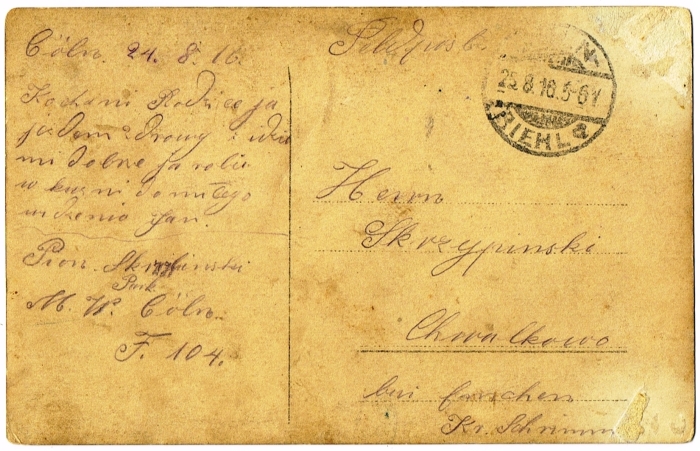 Cöln. 24. 8. 16.
Kochani Rodzice ja
jestem zdrowy i
mi dobrze ja robie
w
widzenia Jan.
Pion. Skrzypinski
Park
M. W. Cöln.
F. 104.
Feldpost
25.8.16.5-6N
BIEHL
Herrn
Skrzypinski
Chwalkowo
bei
Kr. Schrimm